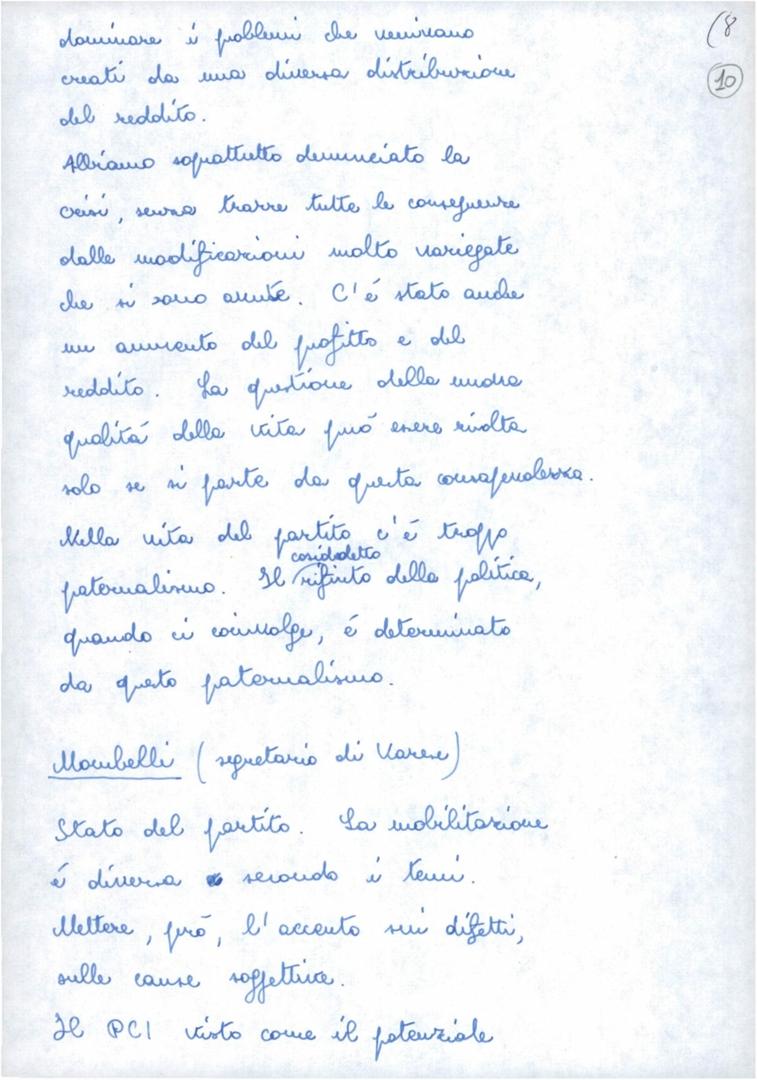 (8
10
dominare i problemi che venivano
creati da una diversa distribuzione
del reddito.
Abbiamo soprattutto denunciato la
crisi, senza trarre tutte le conseguenze
dalle modificazioni molto variegate
che si sono avute. C'é stato anche
un aumento del profitto e del
reddito. La questione della nuova
qualitá della vita puó essere risolta
solo se si parte da questa consapevolezza.
Nella vita del partito c'é troppo
cosiddetto
paternalismo. Il rifiuto della politica,
quando ci coinvolge, é determinato
da questo paternalismo.
Mombelli (segretario di Varese)
Stato del partito. La mobilitazione
é diversa secondo i temi.
Mettere, peró, l'accento sui difetti,
sulle cause soggettive.
Il PCI visto come il potenziale